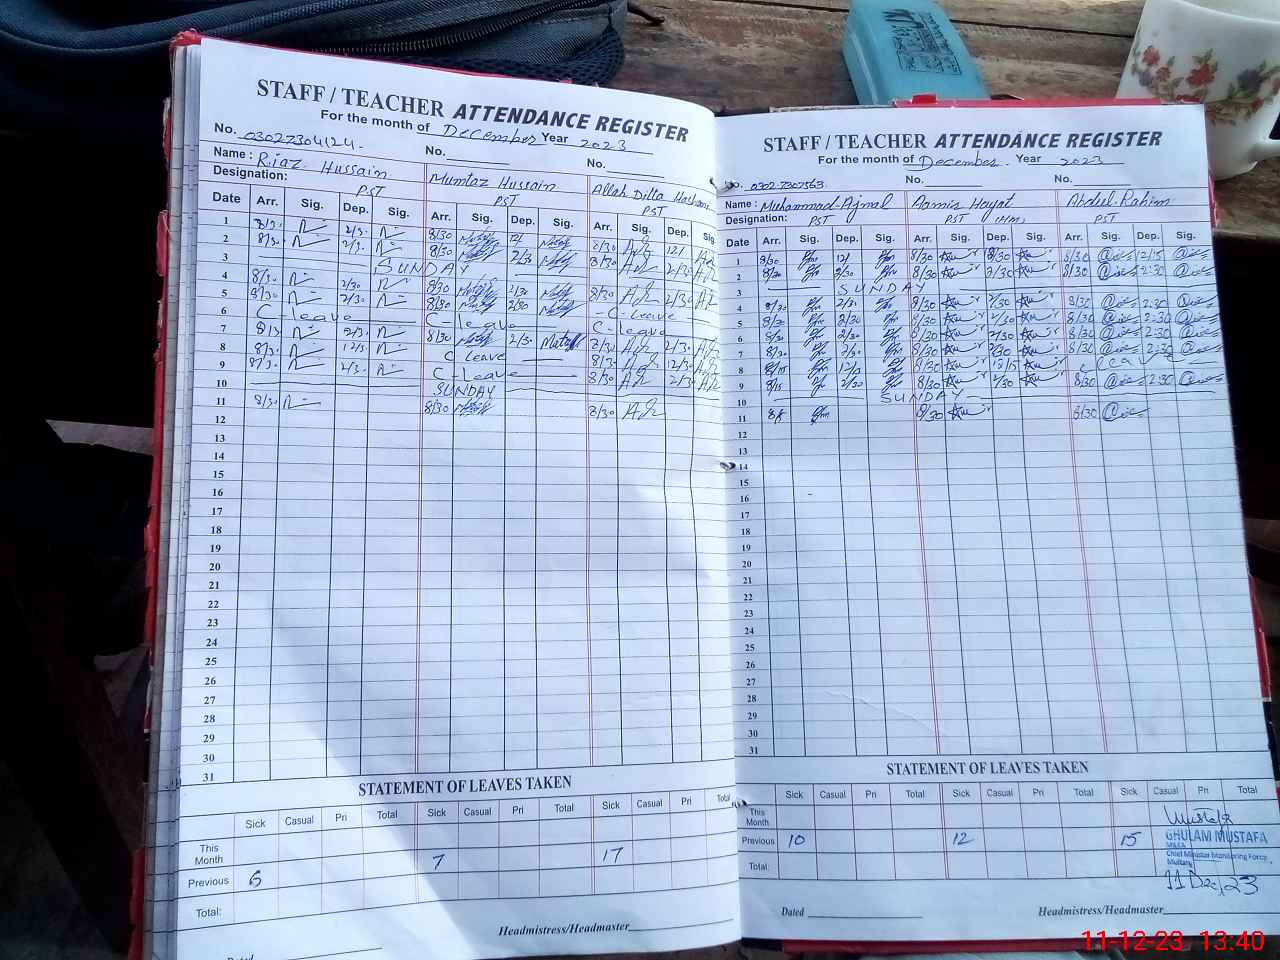 STAFF / TEACHER ATTENDANCE REGISTER
For the month of December Year 2023
No. 03027304124. No. No.
Name: Riaz Hussain Mumtaz Hussain Allah Ditta
Designation: PST PST PST
Date Arr. Sig. Dep. Sig. Arr. Sig. Dep. Sig. Arr. Sig. Dep. Sig.
1 8/30 2/30 8/30 12/ 8/30 12/
2 8/30 2/30 8/30 2/30 8/30 2/30
3 SUNDAY
4 8/30 2/30 8/30 2/30 8/30 2/30
5 8/30 2/30 8/30 2/30
6 C-leave C-leave -C-leave
7 8/30 2/30 8/30 2/30 C-leave
8 8/30 12/30 C leave 8/30 2/30
9 8/30 2/30 C-leave 8/30 12/30
10 SUNDAY 8/30 2/30
11 8/30 8/30 8/30
12
13
14
15
16
17
18
19
20
21
22
23
24
25
26
27
28
29
30
31
STATEMENT OF LEAVES TAKEN
Sick Casual Pri Total Sick Casual Pri Total Sick Casual Pri Total
This Month
Previous 6 7 17
Total:
Headmistress/Headmaster
STAFF / TEACHER ATTENDANCE REGISTER
For the month of December. Year 2023
No. 0302-7307563. No. No.
Name: Muhammad Ajmal Aamir Hayat Abdul Rahim
Designation: PST PST (HM) PST
Date Arr. Sig. Dep. Sig. Arr. Sig. Dep. Sig. Arr. Sig. Dep. Sig.
1 8/30 12/ 8/30 8/30 8/30 12/15
2 8/30 2/30 8/30 2/30 8/30 2:30
3 SUNDAY
4 8/30 2/30 8/30 2/30 8/30 2:30
5 8/30 2/30 8/30 2/30 8/30 2:30
6 8/30 2/30 8/30 2/30 8/30 2:30
7 8/30 2/30 8/30 2/30 8/30 2:30
8 8/15 12/ 8/30 12/15 C leave
9 8/15 2/30 8/30 2/30 8/30 2:30
10 SUNDAY
11 8/30 8/30
12
13
14
15
16
17
18
19
20
21
22
23
24
25
26
27
28
29
30
31
STATEMENT OF LEAVES TAKEN
Sick Casual Pri Total Sick Casual Pri Total Sick Casual Pri Total
This Month
Previous 10 12 15
Total:
Mustafa
GHULAM MUSTAFA
MEA
Chief Minister Monitoring Force
Multan
11 Dec, 23
Dated Headmistress/Headmaster
11-12-23 13:40